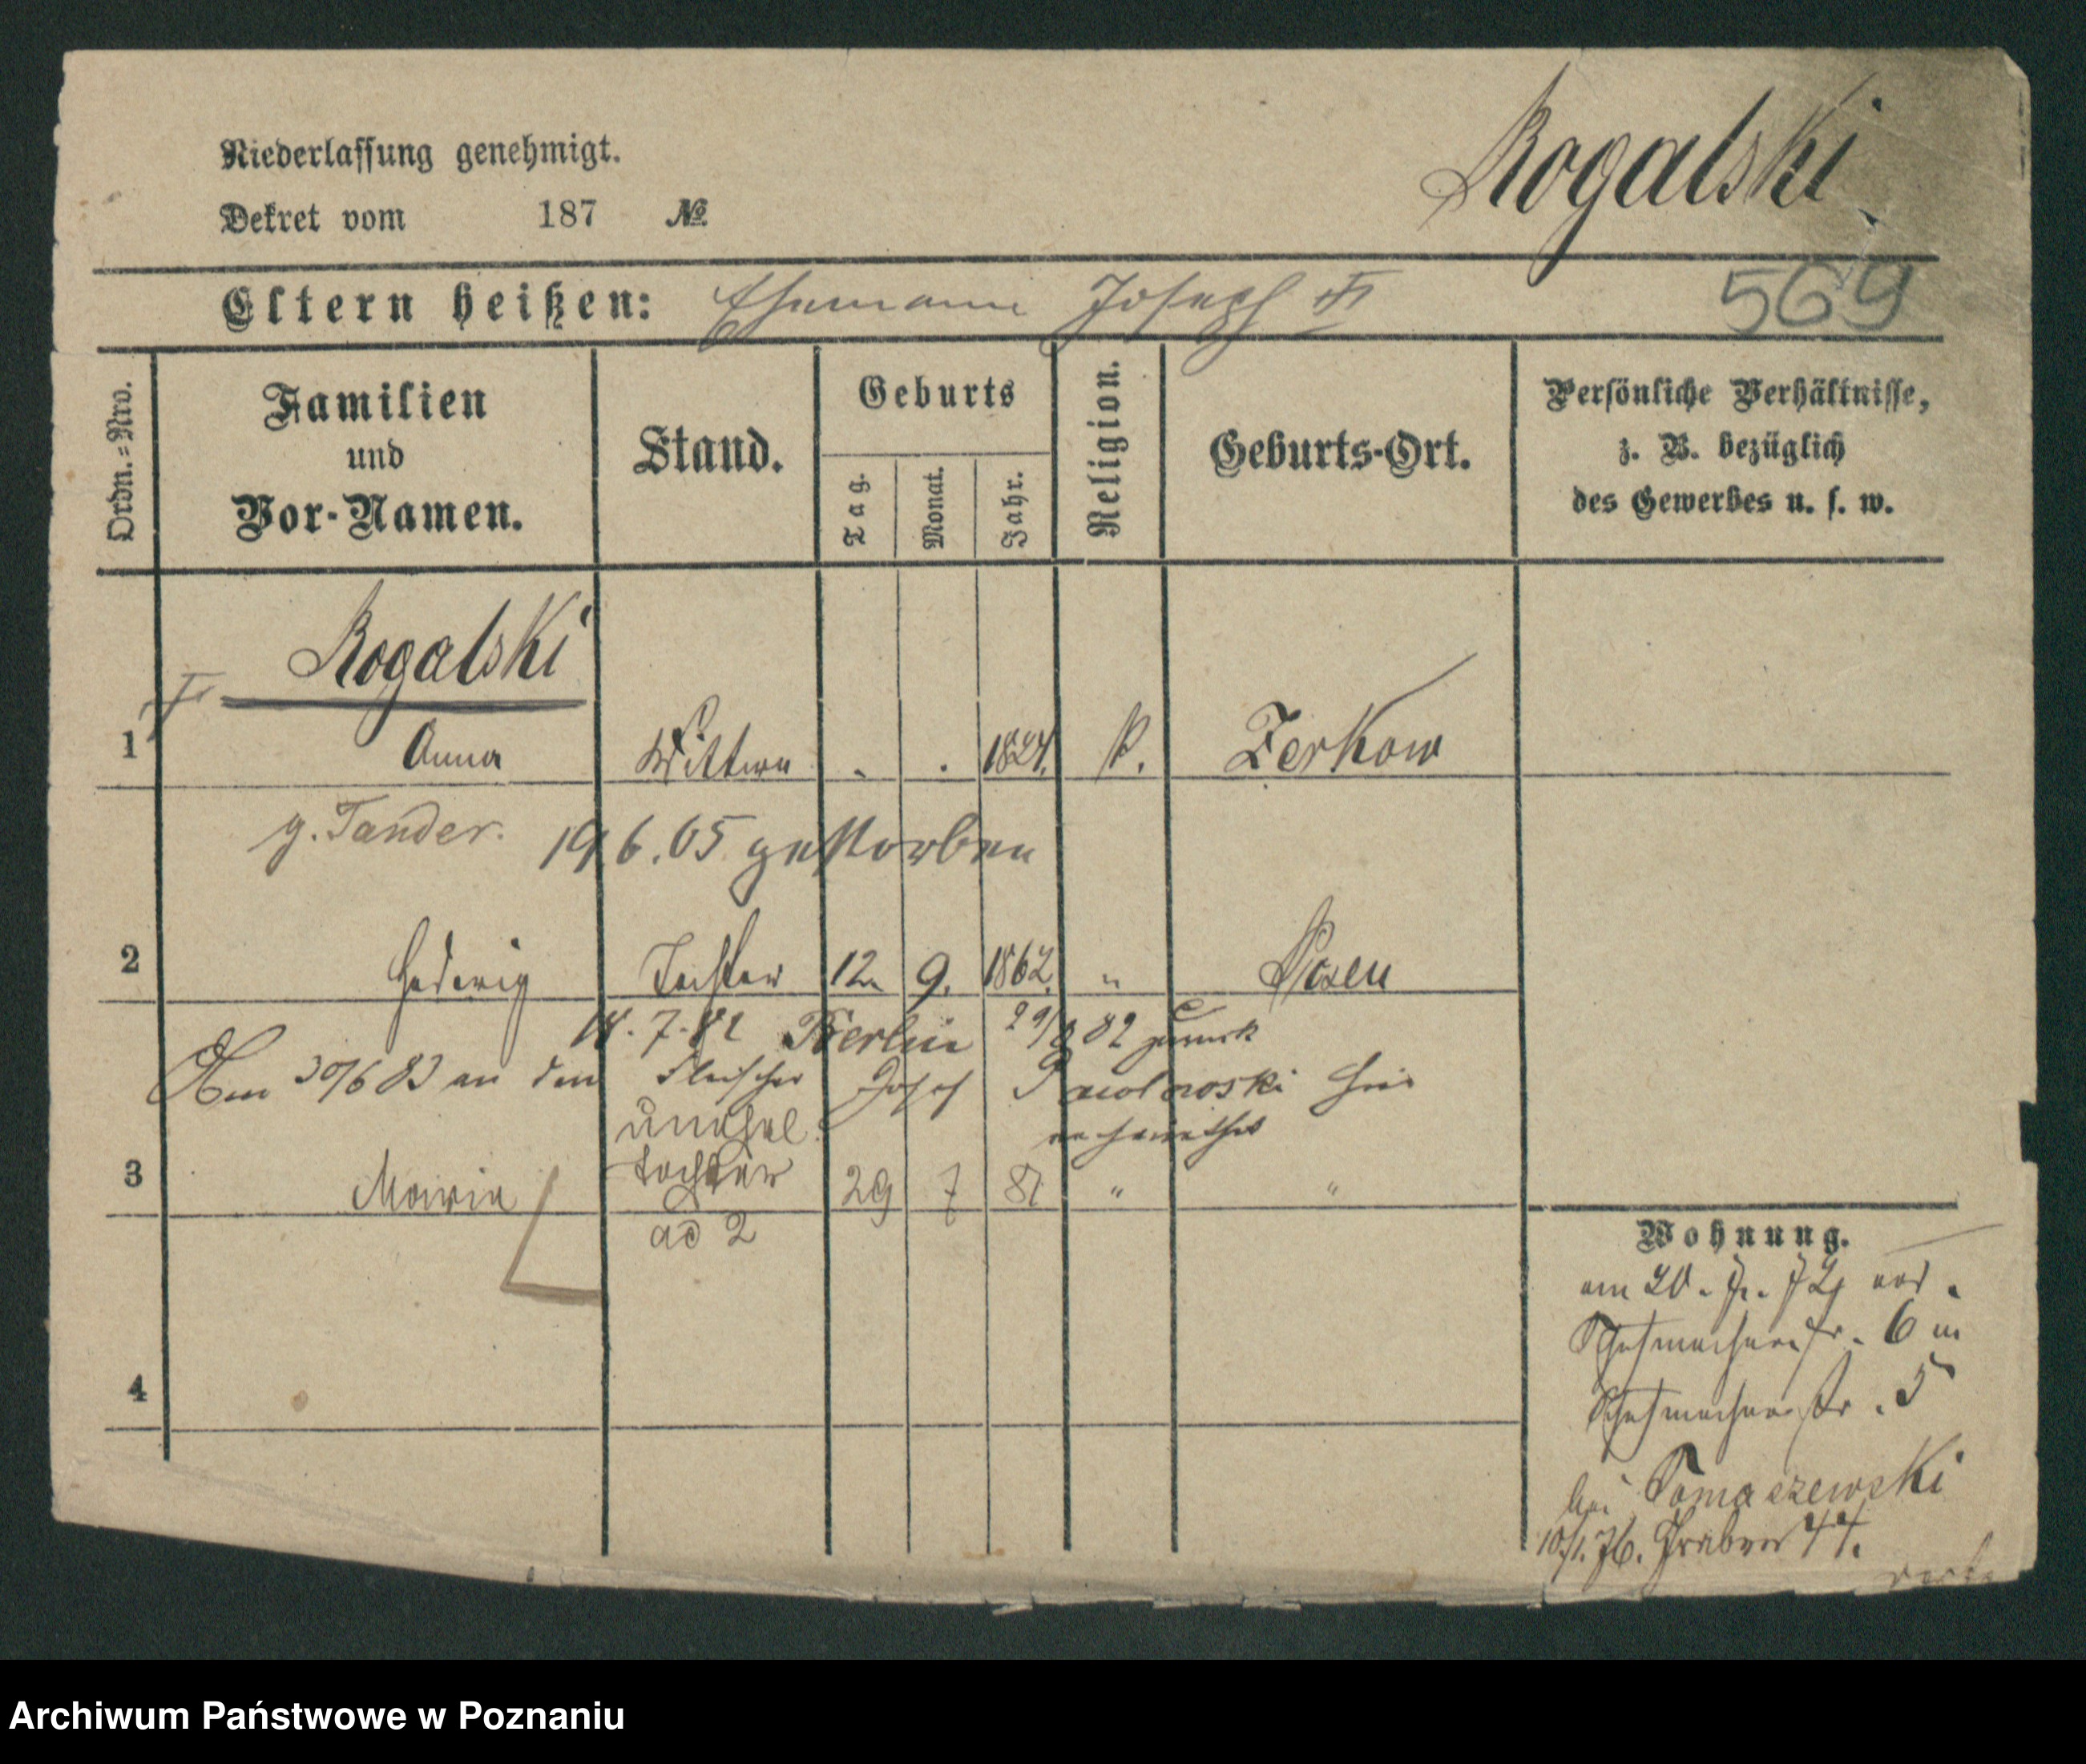 Niederlassung genehmigt.
Dekret vom 187 №
Rogalski
Eltern heißen: Ehemann Joseph
569
Ordn.-Nro.
Familien
und
Vor-Namen.
Stand.
Geburts
Tag.
Monat.
Jahr.
Religion.
Geburts-Ort.
Persönliche Verhältnisse,
z. B. bezüglich
des Gewerbes u. s. w.
Rogalski
1 Anna Wittwe 1824. k. Zerkow
g. Tander. 19 6. 05 gestorben
2 Hedwig Tochter 12 9. 1862. " Posen
7. 82 Berlin 29/8 82 zurück
Am 30/6 83 an den Fleischer Josef hier
verheirathet
unehel.
3 Maria Tochter 29 7 81 " "
ad 2
4
Wohnung.
am 20.
Schuhmacherstr. 6 u
Schuhmacherstr. 5
bei Tomaszewski
10/1. 76. Graben 44.